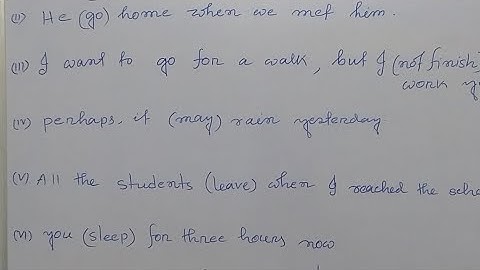 (II) He (go) home when we met him.
(III) I want to go for a walk, but I (not finish)
work
(IV) perhaps, it (may) rain yesterday
(V) All the students (leave) when I reached the
(VI) you (sleep) for three hours now